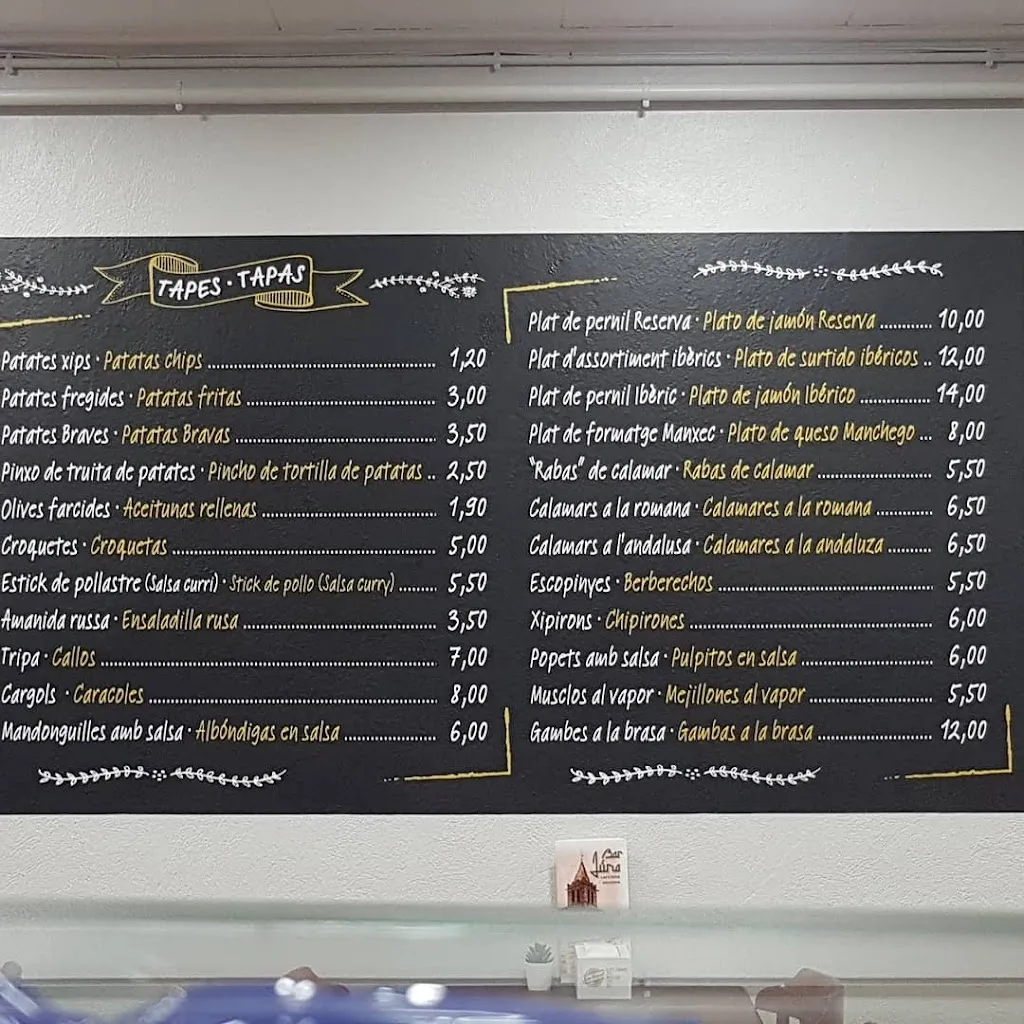 TAPES · TAPAS
Patates xips · Patatas chips ........ 1,20
Patates fregides · Patatas fritas ........ 3,00
Patates Braves · Patatas Bravas ........ 3,50
Pinxo de truita de patates · Pincho de tortilla de patatas .. 2,50
Olives farcides · Aceitunas rellenas ........ 1,90
Croquetes · Croquetas ........ 5,00
Estick de pollastre (Salsa curri) · Stick de pollo (Salsa curry) ........ 5,50
Amanida russa · Ensaladilla rusa ........ 3,50
Tripa · Callos ........ 7,00
Cargols · Caracoles ........ 8,00
Mandonguilles amb salsa · Albóndigas en salsa ........ 6,00
Plat de pernil Reserva · Plato de jamón Reserva ........ 10,00
Plat d'assortiment ibèrics · Plato de surtido ibéricos .. 12,00
Plat de pernil Ibèric · Plato de jamón Ibérico ........ 14,00
Plat de formatge Manxec · Plato de queso Manchego ... 8,00
"Rabas" de calamar · Rabas de calamar ........ 5,50
Calamars a la romana · Calamares a la romana ........ 6,50
Calamars a l'andalusa · Calamares a la andaluza ........ 6,50
Escopinyes · Berberechos ........ 5,50
Xipirons · Chipirones ........ 6,00
Popets amb salsa · Pulpitos en salsa ........ 6,00
Musclos al vapor · Mejillones al vapor ........ 5,50
Gambes a la brasa · Gambas a la brasa ........ 12,00
Bar
Júna